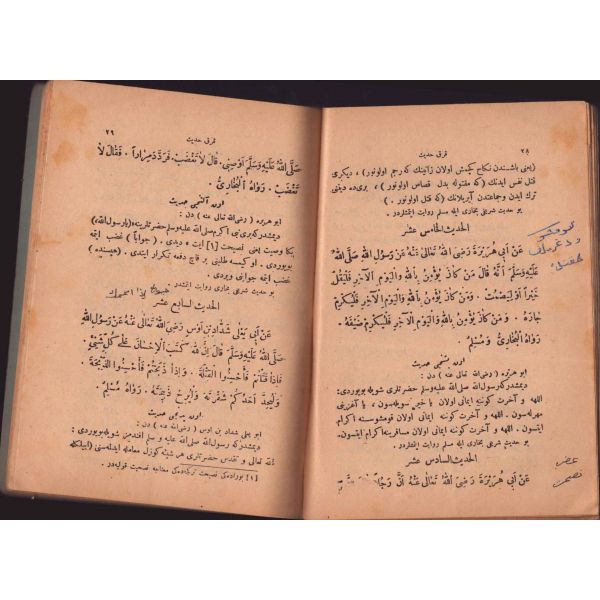 ٢٨
قرق حديث
(يعنى باشندن نكاح كچمش اولان زانينك كه رجم اولونور) ، ديكرى
قتل نفس ايدنك (كه مقتوله بدل قصاص اولونور) ، برى ده دينى
ترك ايدن وجماعتدن آيريلانك (كه قتل اولونور) .
بو حديث شريفى بخارى ايله مسلم روايت ايتمشلردر.
الحديث الخامس عشر
عَنْ أَبِي هُرَيْرَةَ رَضِيَ اللهُ تَعَالَى عَنْهُ عَنْ رَسُولِ اللهِ صَلَّى اللهُ
عَلَيْهِ وَسَلَّمَ أَنَّهُ قَالَ مَنْ كَانَ يُؤْمِنُ بِاللهِ وَالْيَوْمِ الْآخِرِ فَلْيَقُلْ
خَيْرًا أَوْ لِيَصْمُتْ . وَمَنْ كَانَ يُؤْمِنُ بِاللهِ وَالْيَوْمِ الْآخِرِ فَلْيُكْرِمْ
جَارَهُ . وَمَنْ كَانَ يُؤْمِنُ بِاللهِ وَالْيَوْمِ الْآخِرِ فَلْيُكْرِمْ ضَيْفَهُ .
رَوَاهُ الْبُخَارِيُّ وَ مُسْلِمٌ .
اون بشنجى حديث
ابو هريره (رضى الله تعالى عنه) دن :
ديمشدركه رسول الله صلى الله عليه وسلم حضرتلرى شويله بويوردى:
الله و آخرت كوننه ايمانى اولان يا خير سويله سون ، يا آغزينى
مهرله سون . الله و آخرت كوننه ايمانى اولان قومشوسنه اكرام
ايتسون. الله و آخرت كوننه ايمانى اولان مسافرينه اكرام ايتسون.
بو حديث شريفى بخارى ايله مسلم روايت ايتمشلردر.
الحديث السادس عشر
عَنْ أَبِي هُرَيْرَةَ رَضِيَ اللهُ تَعَالَى عَنْهُ أَنَّ رَجُلًا
غضب
نصيحت
٢٩
قرق حديث
صَلَّى اللهُ عَلَيْهِ وَسَلَّمَ أَوْصِنِي. قَالَ لَا تَغْضَبْ. فَرَدَّدَ مِرَاراً. فَقَالَ لَا
تَغْضَبْ . رَوَاهُ الْبُخَارِيُّ
اون آلتنجى حديث
ابو هريره (رضى الله عنه) دن :
ديمشدركه برى نبى اكرم صلى الله عليه وسلم حضرتلرينه «يا رسول الله،
بكا وصيت يعنى نصيحت [١] ايت» ديدى . (جواباً) غضب ايتمه
بويوردى . او كيمسه طلبنى بر قاچ دفعه تكرار ايتدى . (هپسنده)
غضب ايتمه جوابنى ويردى .
بو حديث شريفى بخارى روايت ايتمشدر.
الحديث السابع عشر
عَنْ أَبِي يَعْلَى شَدَّادِ بْنِ أَوْسٍ رَضِيَ اللهُ تَعَالَى عَنْهُ عَنْ رَسُولِ اللهِ
صَلَّى اللهُ عَلَيْهِ وَسَلَّمَ قَالَ إِنَّ اللهَ كَتَبَ الْإِحْسَانَ عَلَى كُلِّ شَيْءٍ.
فَإِذَا قَتَلْتُمْ . فَأَحْسِنُوا الْقِتْلَةَ . وَإِذَا ذَبَحْتُمْ فَأَحْسِنُوا الذِّبْحَةَ .
وَلْيُحِدَّ أَحَدُكُمْ شَفْرَتَهُ وَلْيُرِحْ ذَبِيحَتَهُ . رَوَاهُ مُسْلِمٌ .
اون يدنجى حديث
ابو يعلى شداد بن اوس (رضى الله عنه) دن :
ديمشدركه رسول الله صلى الله عليه و سلم افندمز شويله بويوردى:
الله تعالى و تقدس حضرتلرى هر شيئه كوزل معامله ايدلمسنى (ايلكله
[١] بوراده كى نصيحت تركجه ده كى معناجه نصيحت قوليدر .